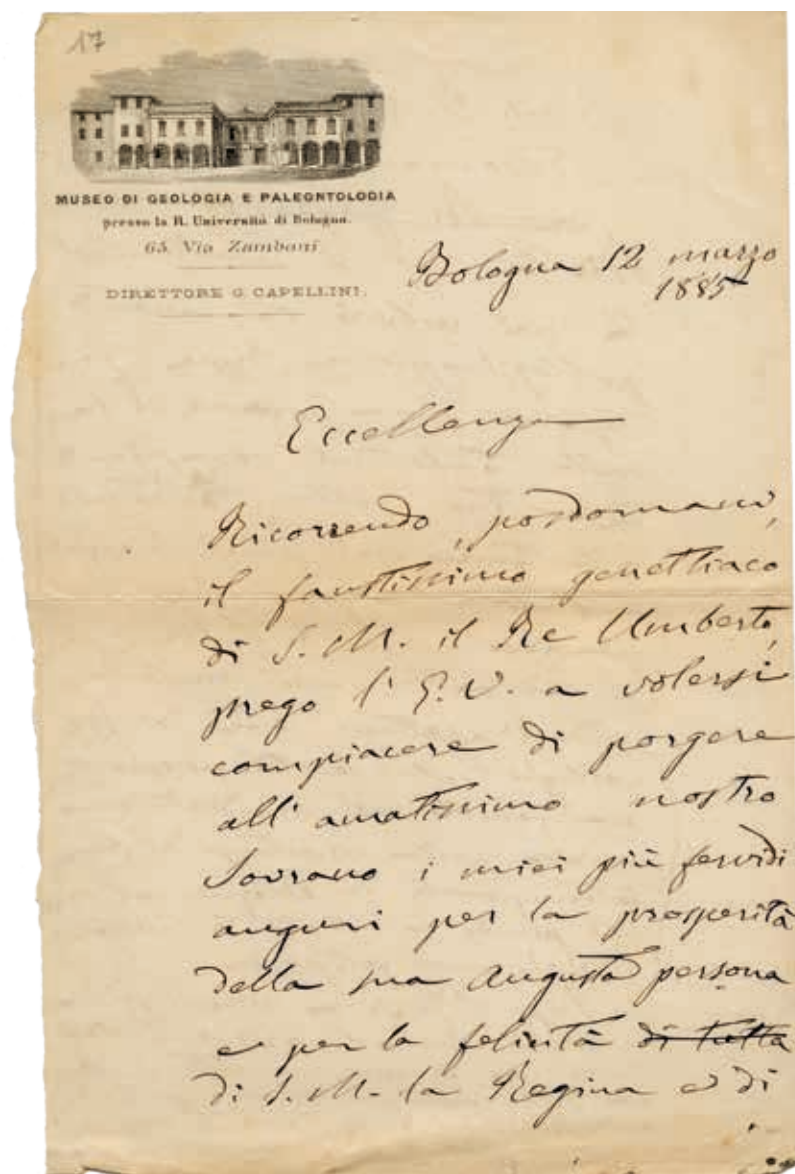 17
MUSEO DI GEOLOGIA E PALEONTOLOGIA
presso la R. Università di Bologna.
65. Via Zamboni
DIRETTORE G. CAPELLINI.
Bologna 12 marzo
1885
Eccellenza
Ricorrendo, posdomani,
il faustissimo genetliaco
di S. M. il Re Umberto,
prego l'E. V. a volersi
compiacere di porgere
all'amatissimo nostro
Sovrano i miei più fervidi
auguri per la prosperità
della sua Augusta persona
e per la felicità di tutta
di S. M. la Regina e di